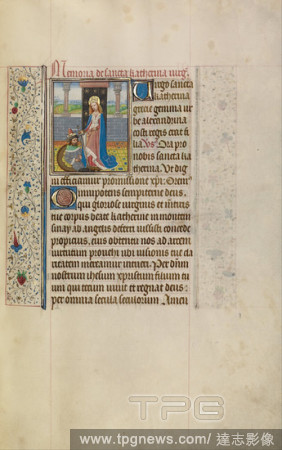 Memoria de sancta katherina virg.
Virgo sancta
katherina
grecie gemma ur
be alexandrina
costi regis erat fi
lia Vs Ora pro
nobis sancta ka
therina Ut dig
ni efficiamur promissione xpi Orem
Omnipotens sempiterne deus
qui gloriose virginis et
corpus beate katherine in montem
synay ab angelis deferri
propicius, eius obtentu nos ad arcem
virtutum provehi
mereamur Per dnm
nostrum ihesum xpristum filium tu
um qui tecum vivit et regnat deus
per omnia secula seculorum Amen
TPG
www.tpgnews.com/達志影像